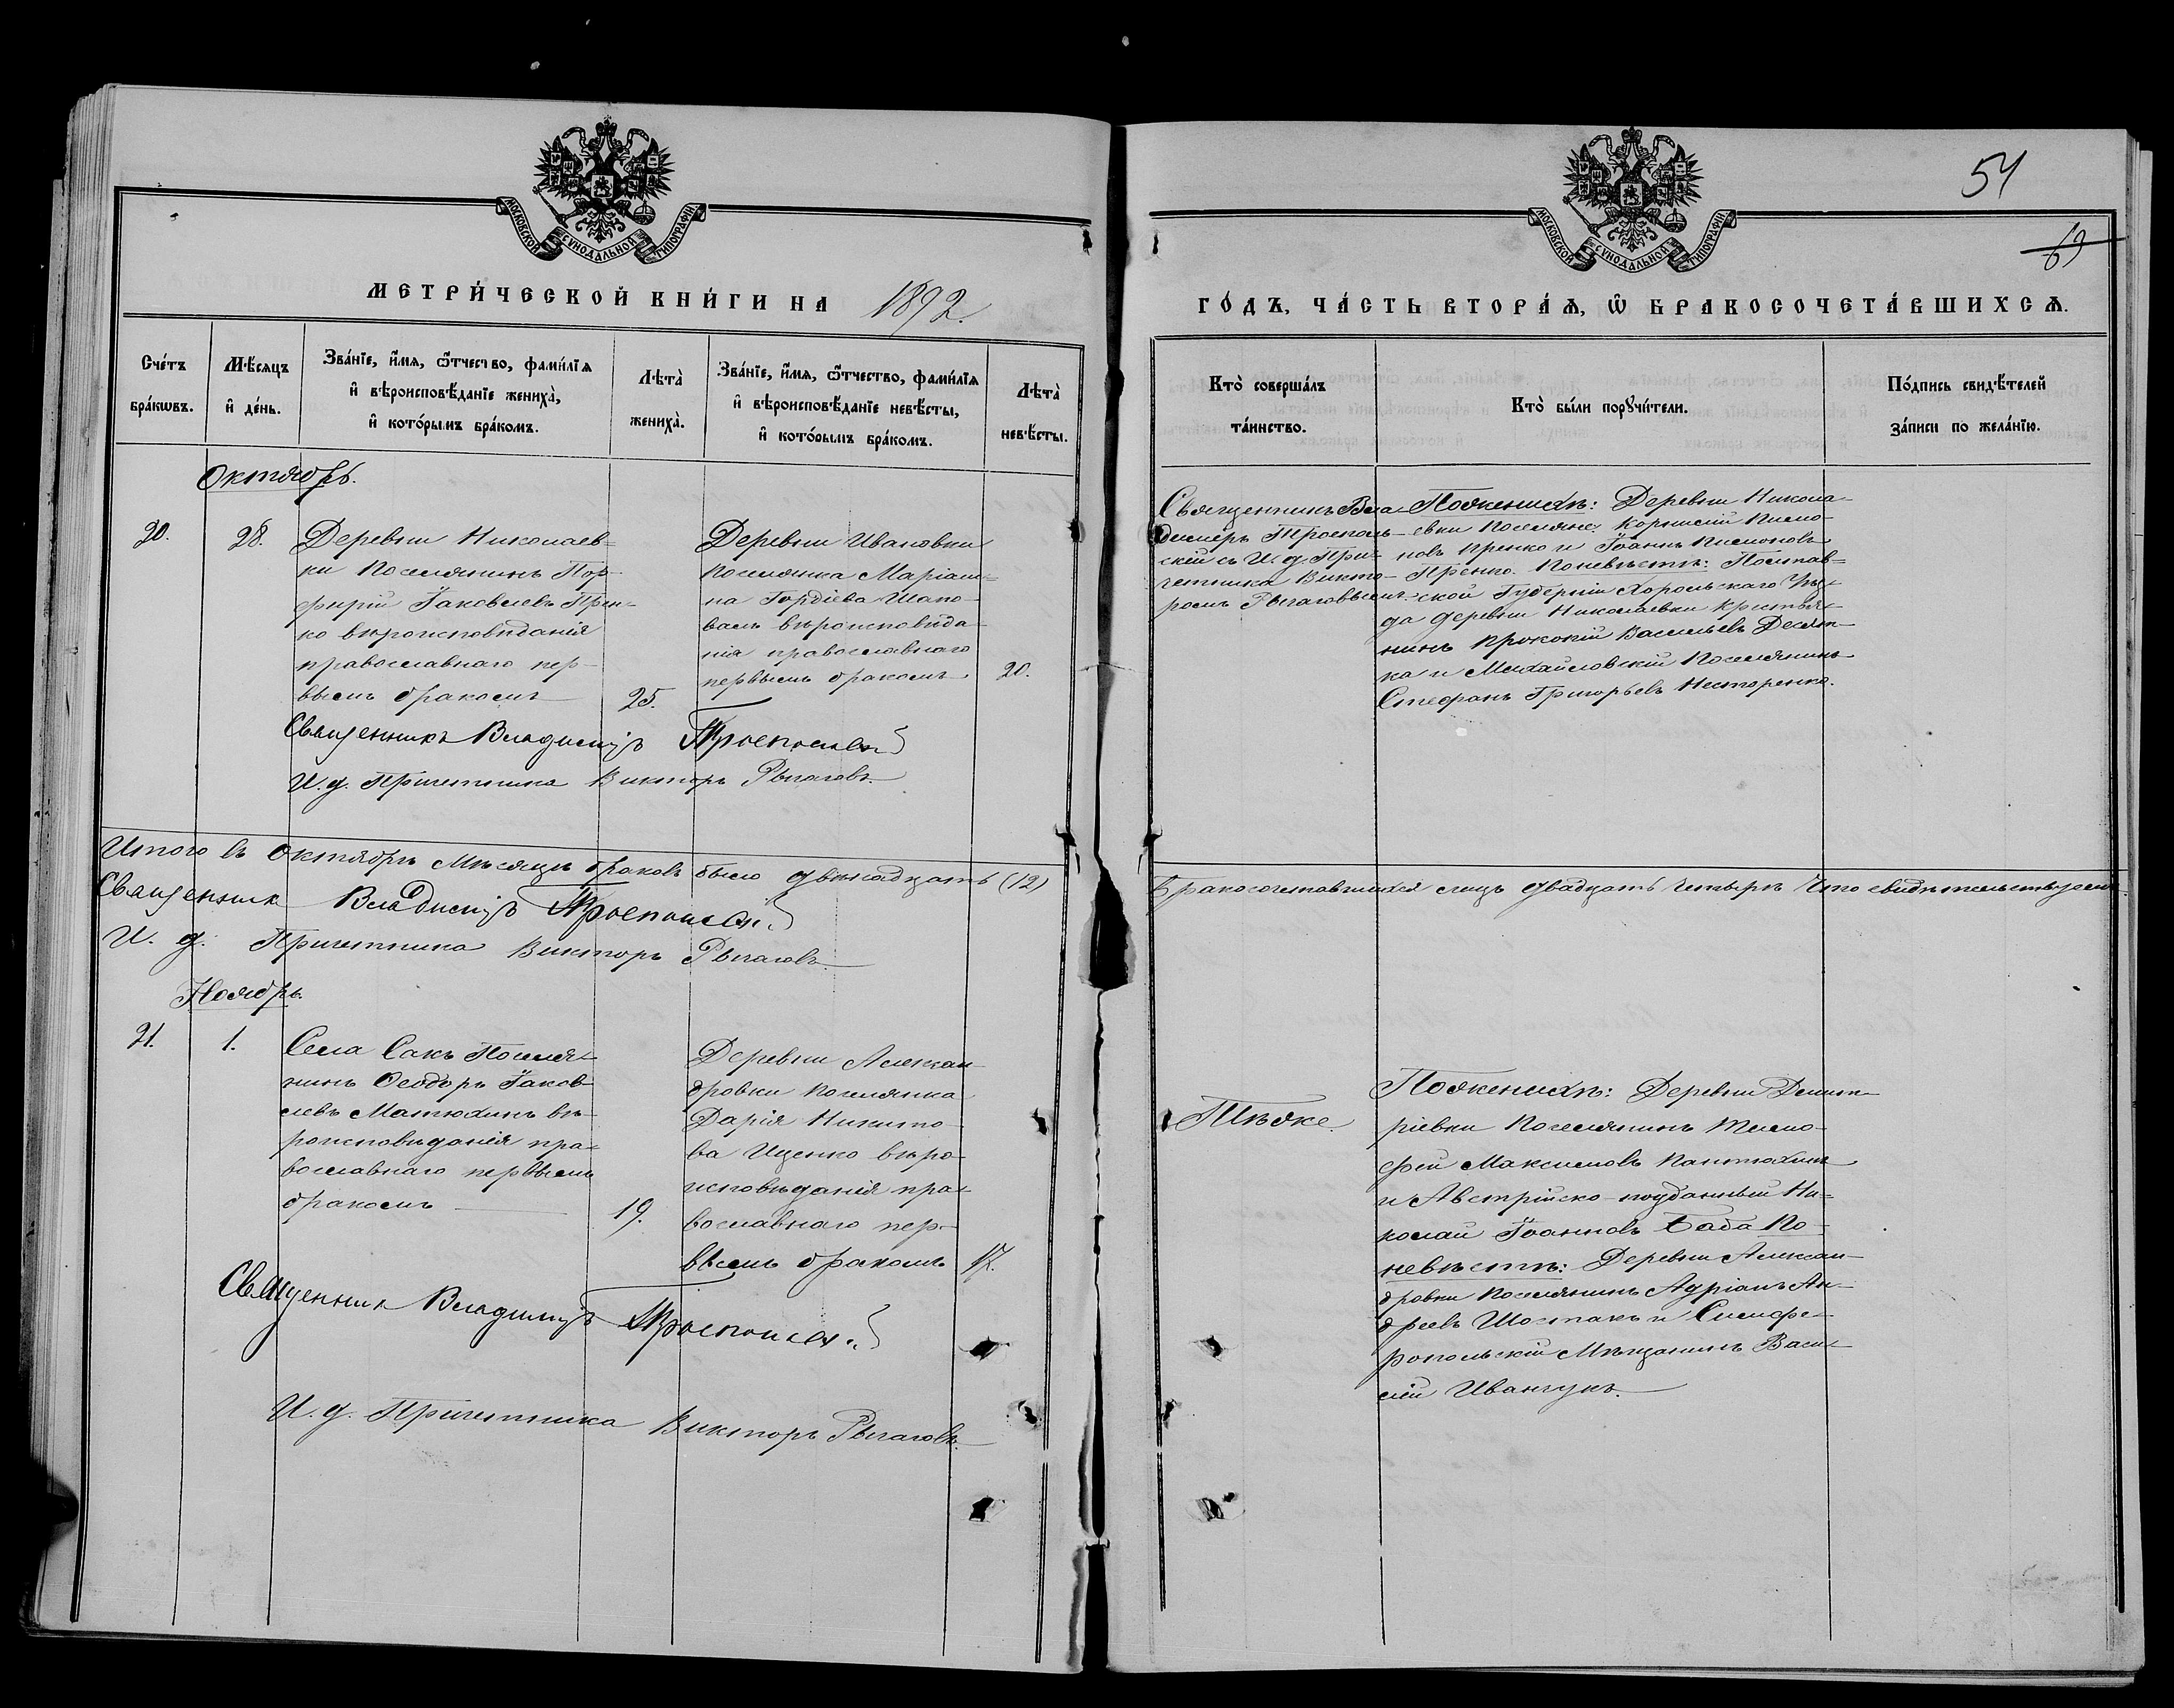 МОСКОВСКОЙ СѴНОДАЛЬНОЙ ТИПОГРАФІИ
МЕТРИ́ЧЕСКОЙ КНИ́ГИ НА 1892.
Сче́тъ бра́кωвъ.
Мѣ́сяцъ и҆ де́нь.
Зва́нїе, и҆́мя, ѻ҆́тчество, фами́лїя
и҆ вѣроисповѣ́данїе жениха̀,
и҆ кото́рымъ бра́комъ.
Лѣта̀ жениха̀.
Зва́нїе, и҆́мя, ѻ҆́тчество, фами́лїя
и҆ вѣроисповѣ́данїе невѣ́сты,
и҆ кото́рымъ бра́комъ.
Лѣта̀ невѣ́сты.
Октябрь.
20.
28.
Деревни Николаев=
ки Поселянинъ Пор-
фирій Іаковлевъ Прен=
ко вѣроисповѣданія
православнаго пер-
вымъ бракомъ
25.
Деревни Ивановки
Поселянка Маріам-
на Гордіева Шапо-
валъ вѣроисповѣда-
нія православнаго
первымъ бракомъ
20.
Священникъ Владимиръ
И. д. Причетника Викторъ Рыгаловъ
Итого въ Октябрѣ Мѣсяцѣ браковъ было двѣнадцать (12)
Священникъ Владимиръ
И. д. Причетника Викторъ
Ноябрь.
21.
1.
Села Сакъ Поселя-
нинъ Ѳеодоръ Іаков-
левъ Матюхинъ вѣ-
роисповѣданія пра-
вославнаго первымъ
бракомъ
19.
Деревни Алексан-
дровки Поселянка
Дарія Никито-
ва Ищенко вѣро-
исповѣданія пра-
вославнаго пер-
вымъ бракомъ
17.
Священникъ Владимиръ
И. д. Причетника Викторъ
54
69
МОСКОВСКОЙ СѴНОДАЛЬНОЙ ТИПОГРАФІИ
ГО́ДЪ, ЧА́СТЬ ВТОРА́Я, Ѿ БРАКОСОЧЕТА́ВШИХСЯ.
Кто̀ соверша́лъ
та́инство.
Кто̀ бы́ли порꙋчи́тели.
По́дпись свидѣ́телей
за́писи по жела́нїю.
Священникъ Вла-
димиръ
скій съ И. д. При-
четника Викто-
ромъ
По женихѣ: Деревни Никола-
евки Поселяне: Корнилій Пимо-
новъ Пренко и Іоаннъ Пимоновъ
Пренко. По невѣстѣ: Полтав=
ской Губерніи Хорольскаго Уѣз-
да деревни Николаевки Крестья-
нинъ Прокопій Васильевъ Десят-
ка и Михайловскій Поселянинъ
Стефанъ Григорьевъ Несторенко.
Бракосочетавшихся лицъ двадцать четыре Что свидѣтельствуемъ
Тѣ же.
По женихѣ: Деревни Димит-
ріевки Поселянинъ Тимо-
фей Максимовъ Пантюхинъ
и Австрійско-подданный Ни-
колай Іоанновъ Баба По
невѣстѣ: Деревни Алексан-
дровки Поселянинъ Адріанъ Ан-
дреевъ Шостакъ и Симфе-
ропольскій Мѣщанинъ Васи-
лій Иванчукъ.